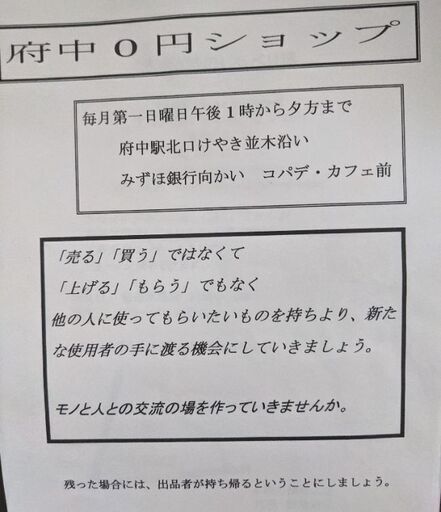 府中０円ショップ
毎月第一日曜日午後１時から夕方まで
府中駅北口けやき並木沿い
みずほ銀行向かい　コパデ・カフェ前
「売る」「買う」ではなくて
「上げる」「もらう」でもなく
他の人に使ってもらいたいものを持ちより、新た
な使用者の手に渡る機会にしていきましょう。
モノと人との交流の場を作っていきませんか。
残った場合には、出品者が持ち帰るということにしましょう。